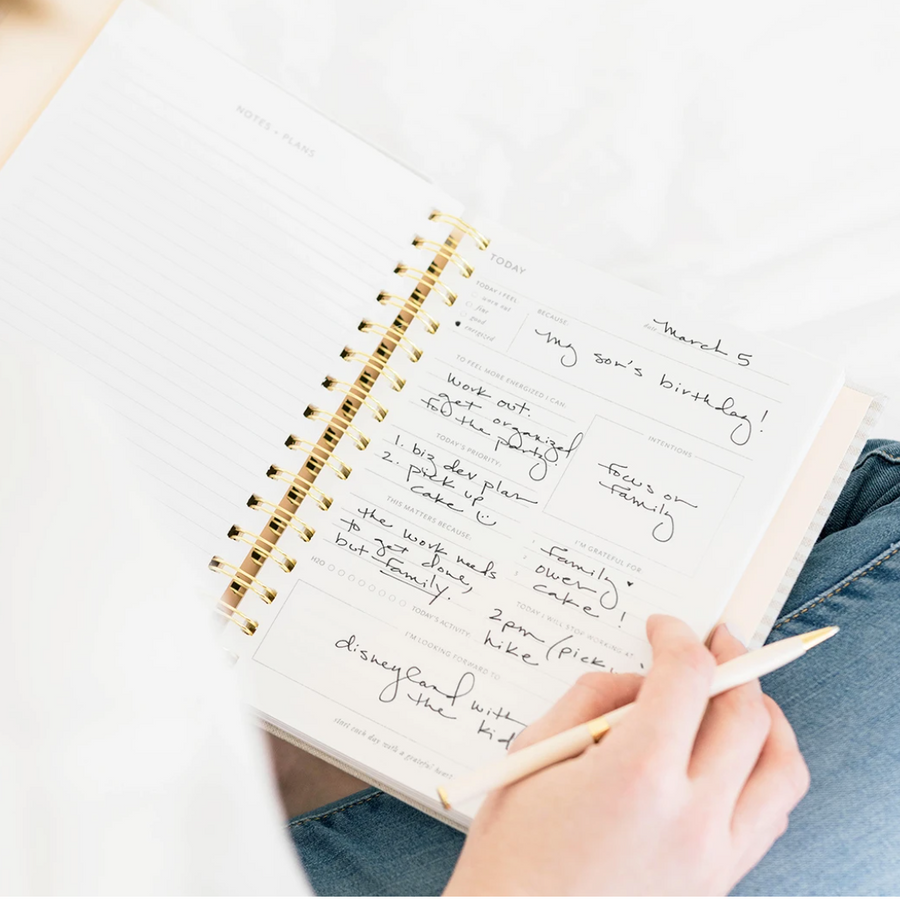 NOTES + PLANS
TODAY
date March 5
TODAY I FEEL
worn out
fine
good
energized
BECAUSE:
my son's birthday!
TO FEEL MORE ENERGIZED I CAN:
work out.
get organized
for the party!
INTENTIONS
focus on
family
TODAY'S PRIORITY:
1. biz dev plan
2. pick up
cake
THIS MATTERS BECAUSE:
the work needs
to get done,
but family.
I'M GRATEFUL FOR
family
cake!
H2O
TODAY I WILL STOP WORKING AT
2pm (pick
TODAY'S ACTIVITY:
hike
I'M LOOKING FORWARD TO
disneyland with
the kid
start each day with a grateful heart